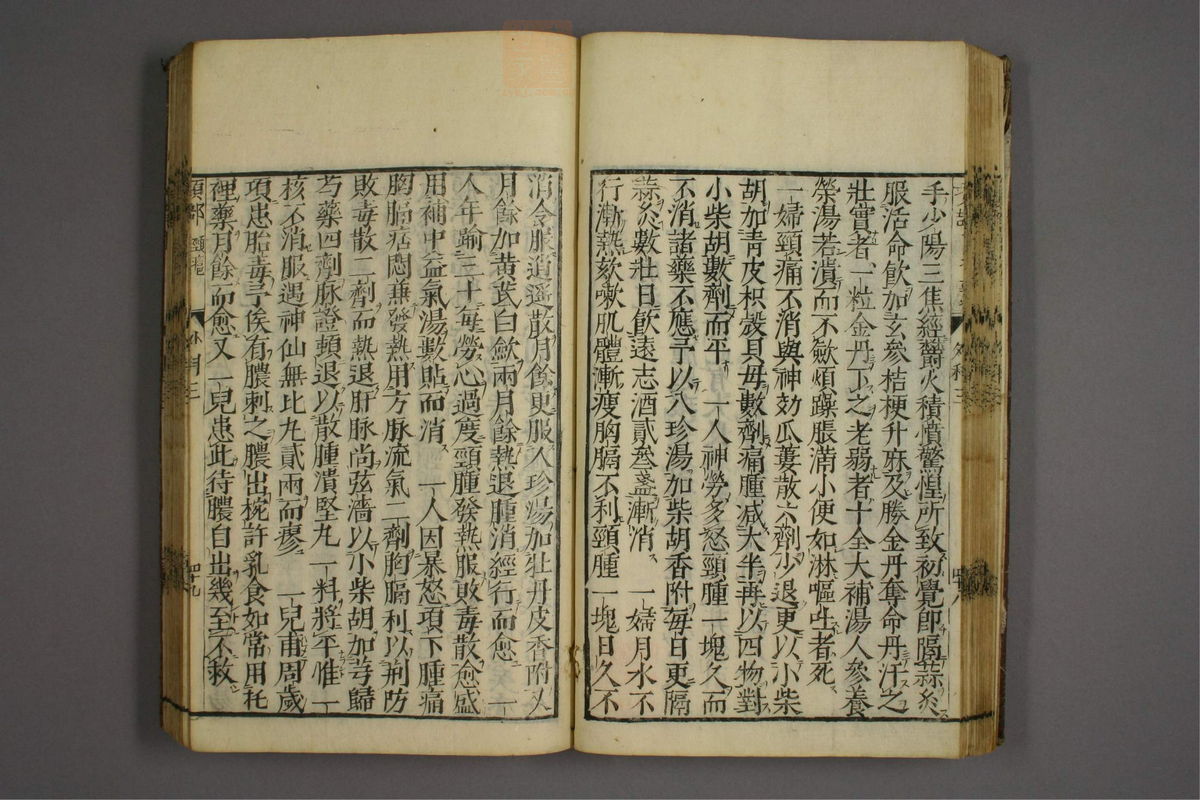 手少陽三焦經鬱火積憤驚惶所致初覺即隔蒜灸
服活命飲加玄參桔梗升麻及勝金丹奪命丹汗之
壯實者一粒金丹下之老弱者十全大補湯人參養
榮湯若潰而不斂煩躁脹滿小便如淋嘔吐者死
一婦頸痛不消與神効瓜蔞散六劑少退更以小柴
胡加青皮枳殼貝母數劑痛腫减大半再以四物對
小柴胡數劑而平 一人神勞多怒頸腫一塊久而
不消諸藥不應予以八珍湯加柴胡香附每日更隔
蒜灸數壯日飲遠志酒貳叄盞漸消 一婦月水不
行漸熱欬嗽肌體漸瘦胸膈不利頸腫一塊日久不
消令服逍遥散月餘更服八珍湯加牡丹皮香附又
月餘加黄芪白歛兩月餘熱退腫消經行而愈 一
人年踰三十每勞心過度頸腫發熱服敗毒散愈盛
用補中益氣湯數貼而消 一人因暴怒項下腫痛
胸膈痞悶兼發熱用方脉流氣二劑胸膈利以荆防
敗毒散二劑而熱退肝脉尚弦濇以小柴胡加芎歸
芍藥四劑脉證頓退以散腫潰堅丸一料將平惟一
核不消服遇神仙無比丸貳兩而瘳 一兒甫周歲
項患胎毒予俟有膿刺之膿出椀許乳食如常用托
裡藥月餘而愈又一兒患此待膿自出幾至不救
頸部 四十九
外科三 四十八